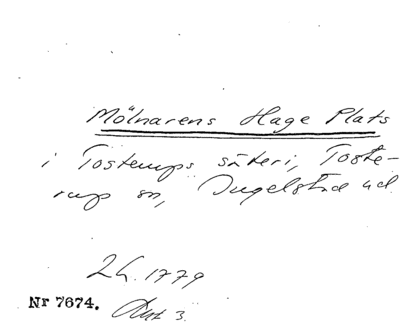 Mölnarens Hage Plats
i Tosterups säteri, Toste-
rup sn, Ingelstad hd
26. 1779
Nr 7674. Akt 3.